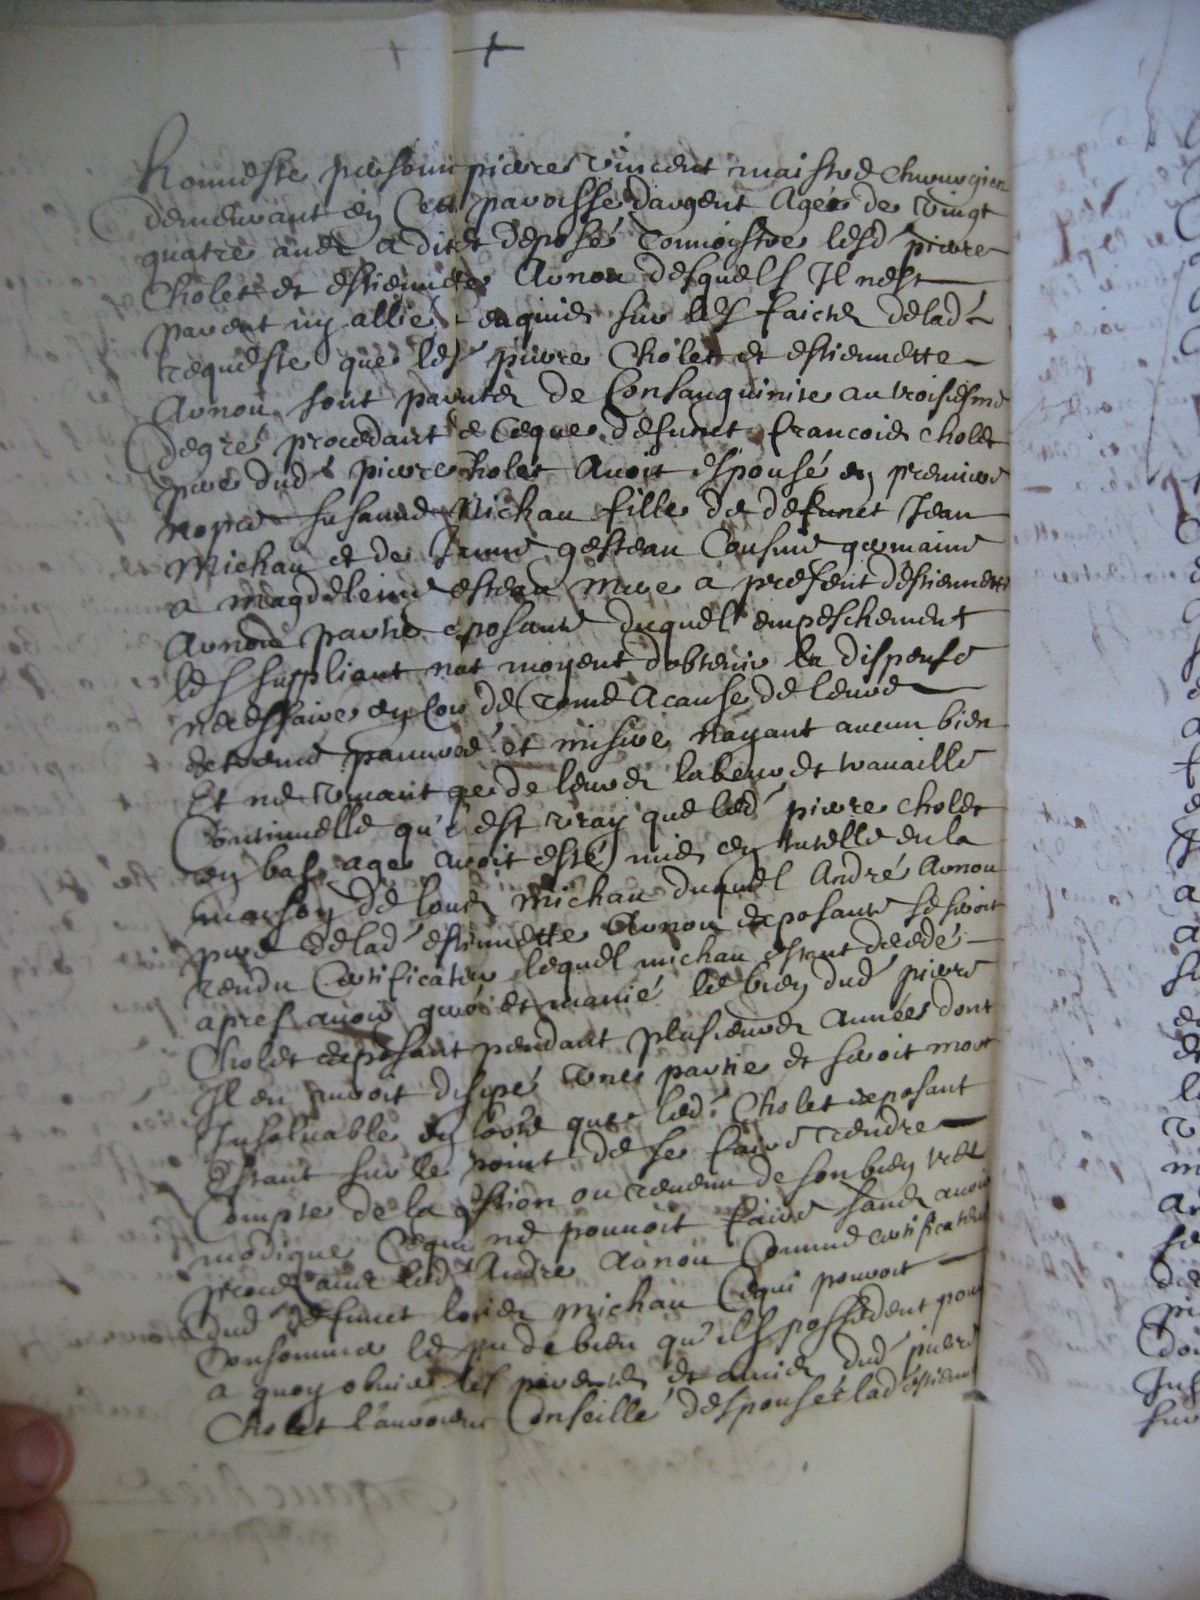 honneste personne pierre vincent maistre chirurgien
demeurant en cett paroisse dargent Agée de vingt
quatre ans a dit et deposé connoystre lesd pierre
Cholet et estiennette Arnou desquels Il nest
parent ny allié enquis sur les faicts delad
requeste que lesd pierre Cholet et estiennette
Arnou sont parents de Consanguinite au troisiesme
degré procedant de ceque defunct francois cholet
pere dud pierre Cholet Avoit espousé en premiere
nopce susanne Michau fille de defunct Jean
Michau et de Jeanne gesteau Cousine germaine
a magdeleine gesteau mere a present destiennette
Arnou partie exposante duquel empeschement
les suppliant nat moyent dobtenir la dispense
necessaire en Cour de Rome Acause de leurs
extreme pauvreté et misere nayant aucun bien
Et ne vivant que de leurs labeur et travaille
Continuelle qu'il est vray que led pierre cholet
en bas age avoit esté mis en tutelle en la
maison de louis Michau duquel André Arnou
pere delad estiennette Arnou exposante seseroit
rendu Certificateur lequel michau estant decedé
apres avoir geré et manié le bien dud pierre
Cholet exposant pendant plusieurs Années dont
Il en auroit disipé une partie et seroit mort
Insoluable en sorte que led Cholet exposant
Estant sur le point de se faire rendre
Compte de la gestion ou revenu de son bien tres
modique Cequi ne pouvoit faire sans avoir
proces avec led André Arnou Comme certificateur
dud defunct louis michau Cequi pouvoit
Consommer le peu de bien qu'ils possedent pour
a quoy obvier les parents et amis dud pierre
Cholet l'auroient Conseillé despouser lad estiennette